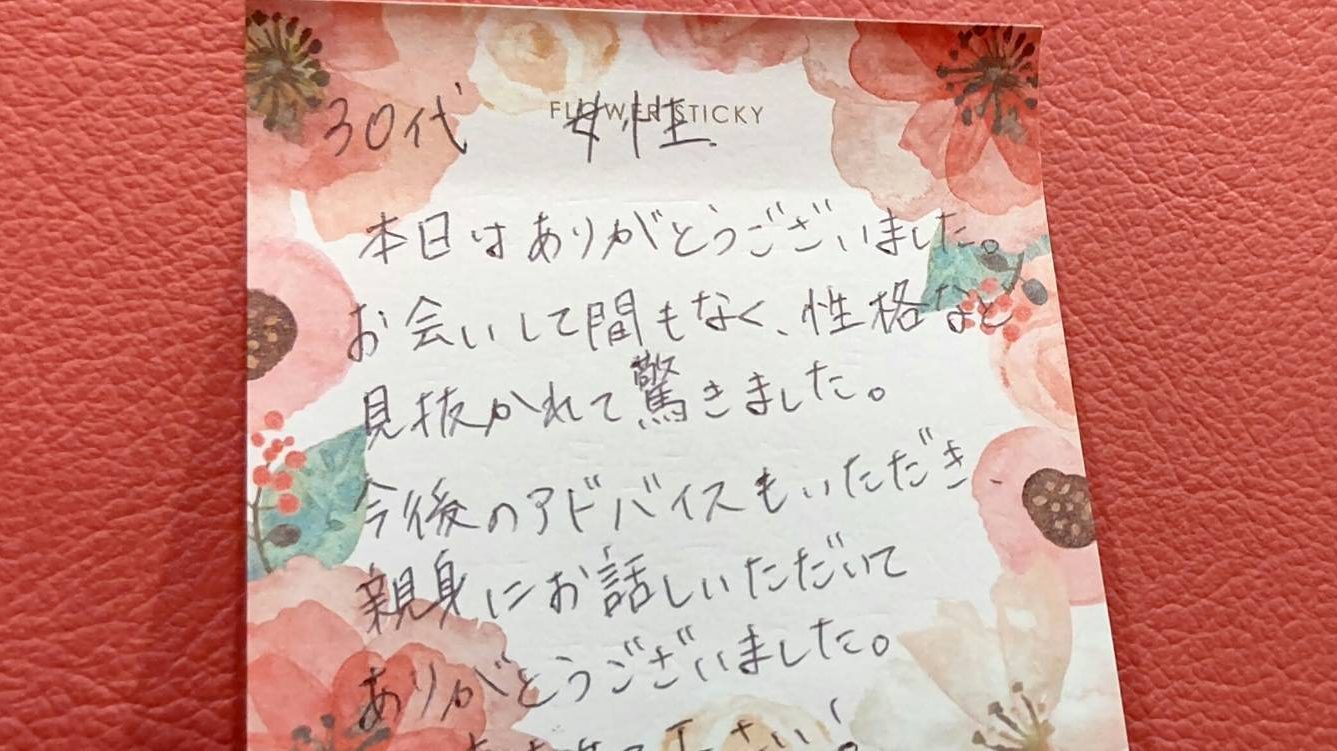 FLOWER STICKY
30代 女性
本日はありがとうございました。
お会いして間もなく、性格など
見抜かれて驚きました。
今後のアドバイスもいただき
親身にお話しいただいて
ありがとうございました。